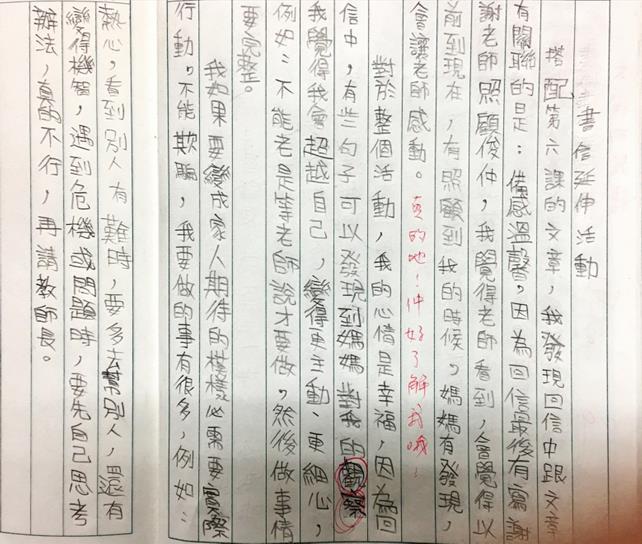 書信延伸活動
搭配第六課的文章，我發現回信中跟文章
有關聯的是：備感溫馨，因為回信最後有寫謝
謝老師照顧俊仲，我覺得老師看到，會覺得以
前到現在，有照顧到我的時候，媽媽有發現，
會讓老師感動。真的地！仲好了解我哦！
對於整個活動，我的心情是幸福，因為回
信中，有些句子可以發現到媽媽對我的觀察
我覺得我會超越自己，變得更主動、更細心，
例如：不能老是等老師說才要做，然後做事情
要完整。
我如果要變成家人期待的樣樣必需要實際
行動，不能欺騙，我要做的事有很多，例如：
熱心，看到別人有難時，要多去幫別人，還有
變得機智，遇到危機或問題時，要先自己思考
辦法，真的不行，再請教師長。